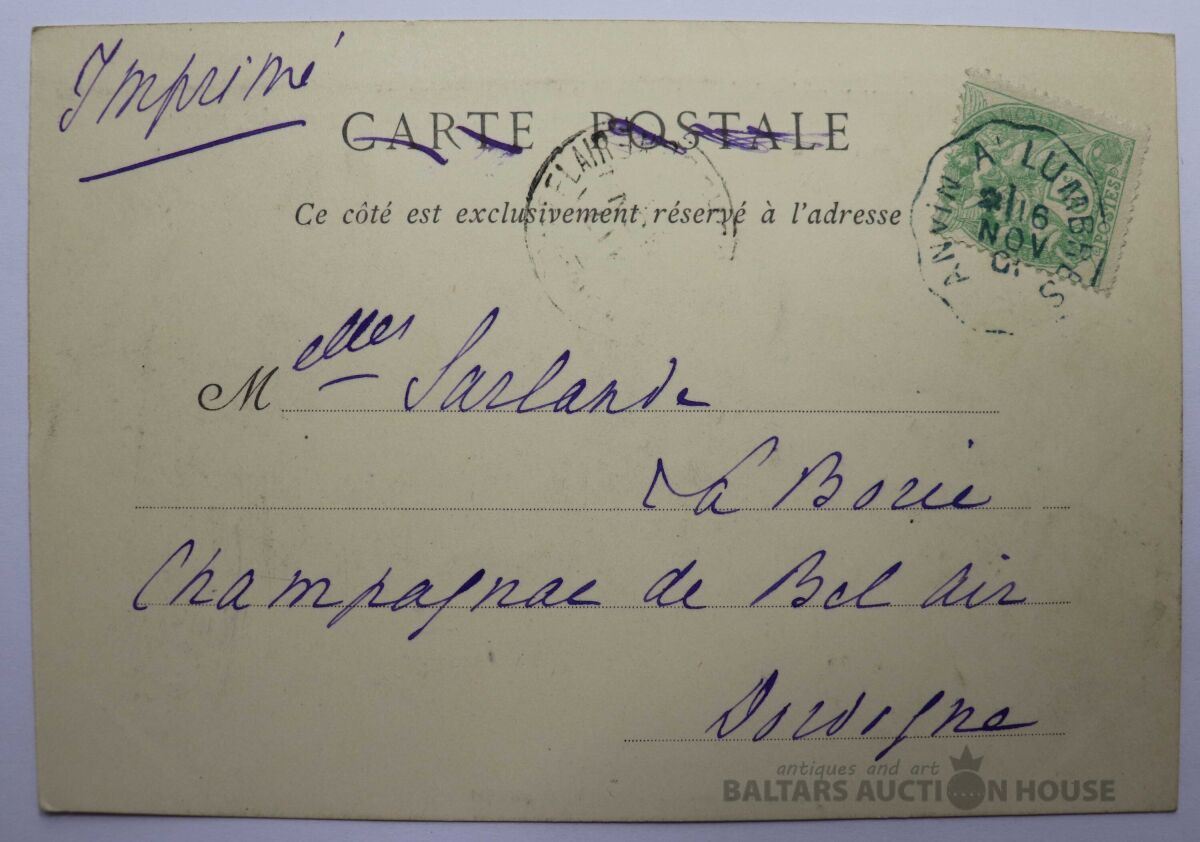 Imprimé
CARTE POSTALE
Ce côté est exclusivement réservé à l'adresse
FRANÇAISE
POSTES
ANVIN A LUMBRES
16
NOV
01
Melles Sarlande
La Borie
Champagnac de Bel air
Dordogne
antiques and art
BALTARS AUCTION HOUSE